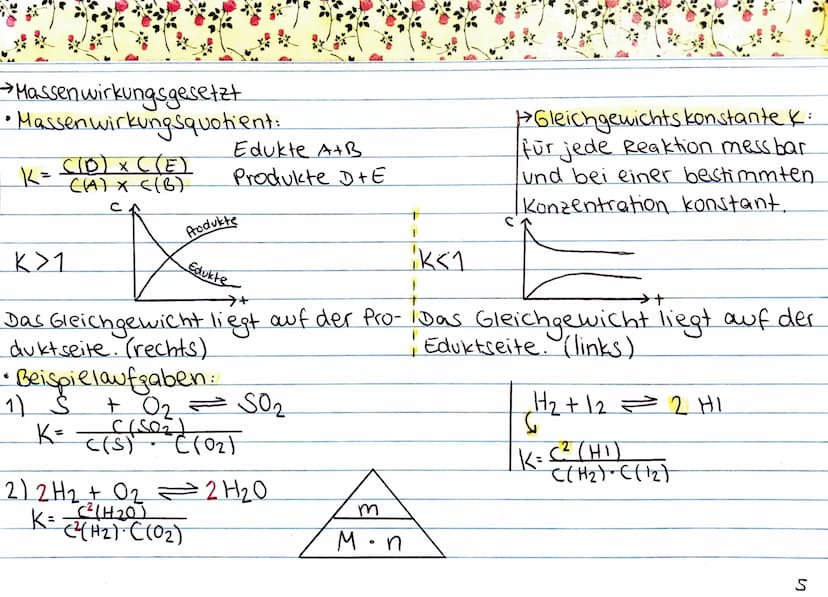 →Massenwirkungsgesetzt
• Massenwirkungsquotient:
K= C(D) x C(E) / C(A) x C(B)
Edukte A+B
Produkte D+E
→Gleichgewichtskonstante K:
für jede Reaktion messbar
und bei einer bestimmten
Konzentration konstant.
K>1
C
Produkte
Edukte
t
Das Gleichgewicht liegt auf der Pro-
duktseite. (rechts)
K<1
C
t
Das Gleichgewicht liegt auf der
Eduktseite. (links)
• Beispielaufgaben:
1) S + O2 ⇌ SO2
K= C(SO2) / C(S) · C(O2)
H2 + I2 ⇌ 2 HI
K= C²(HI) / C(H2)·C(I2)
2) 2H2 + O2 ⇌ 2H2O
K= C²(H2O) / C²(H2)·C(O2)
m
M · n
5